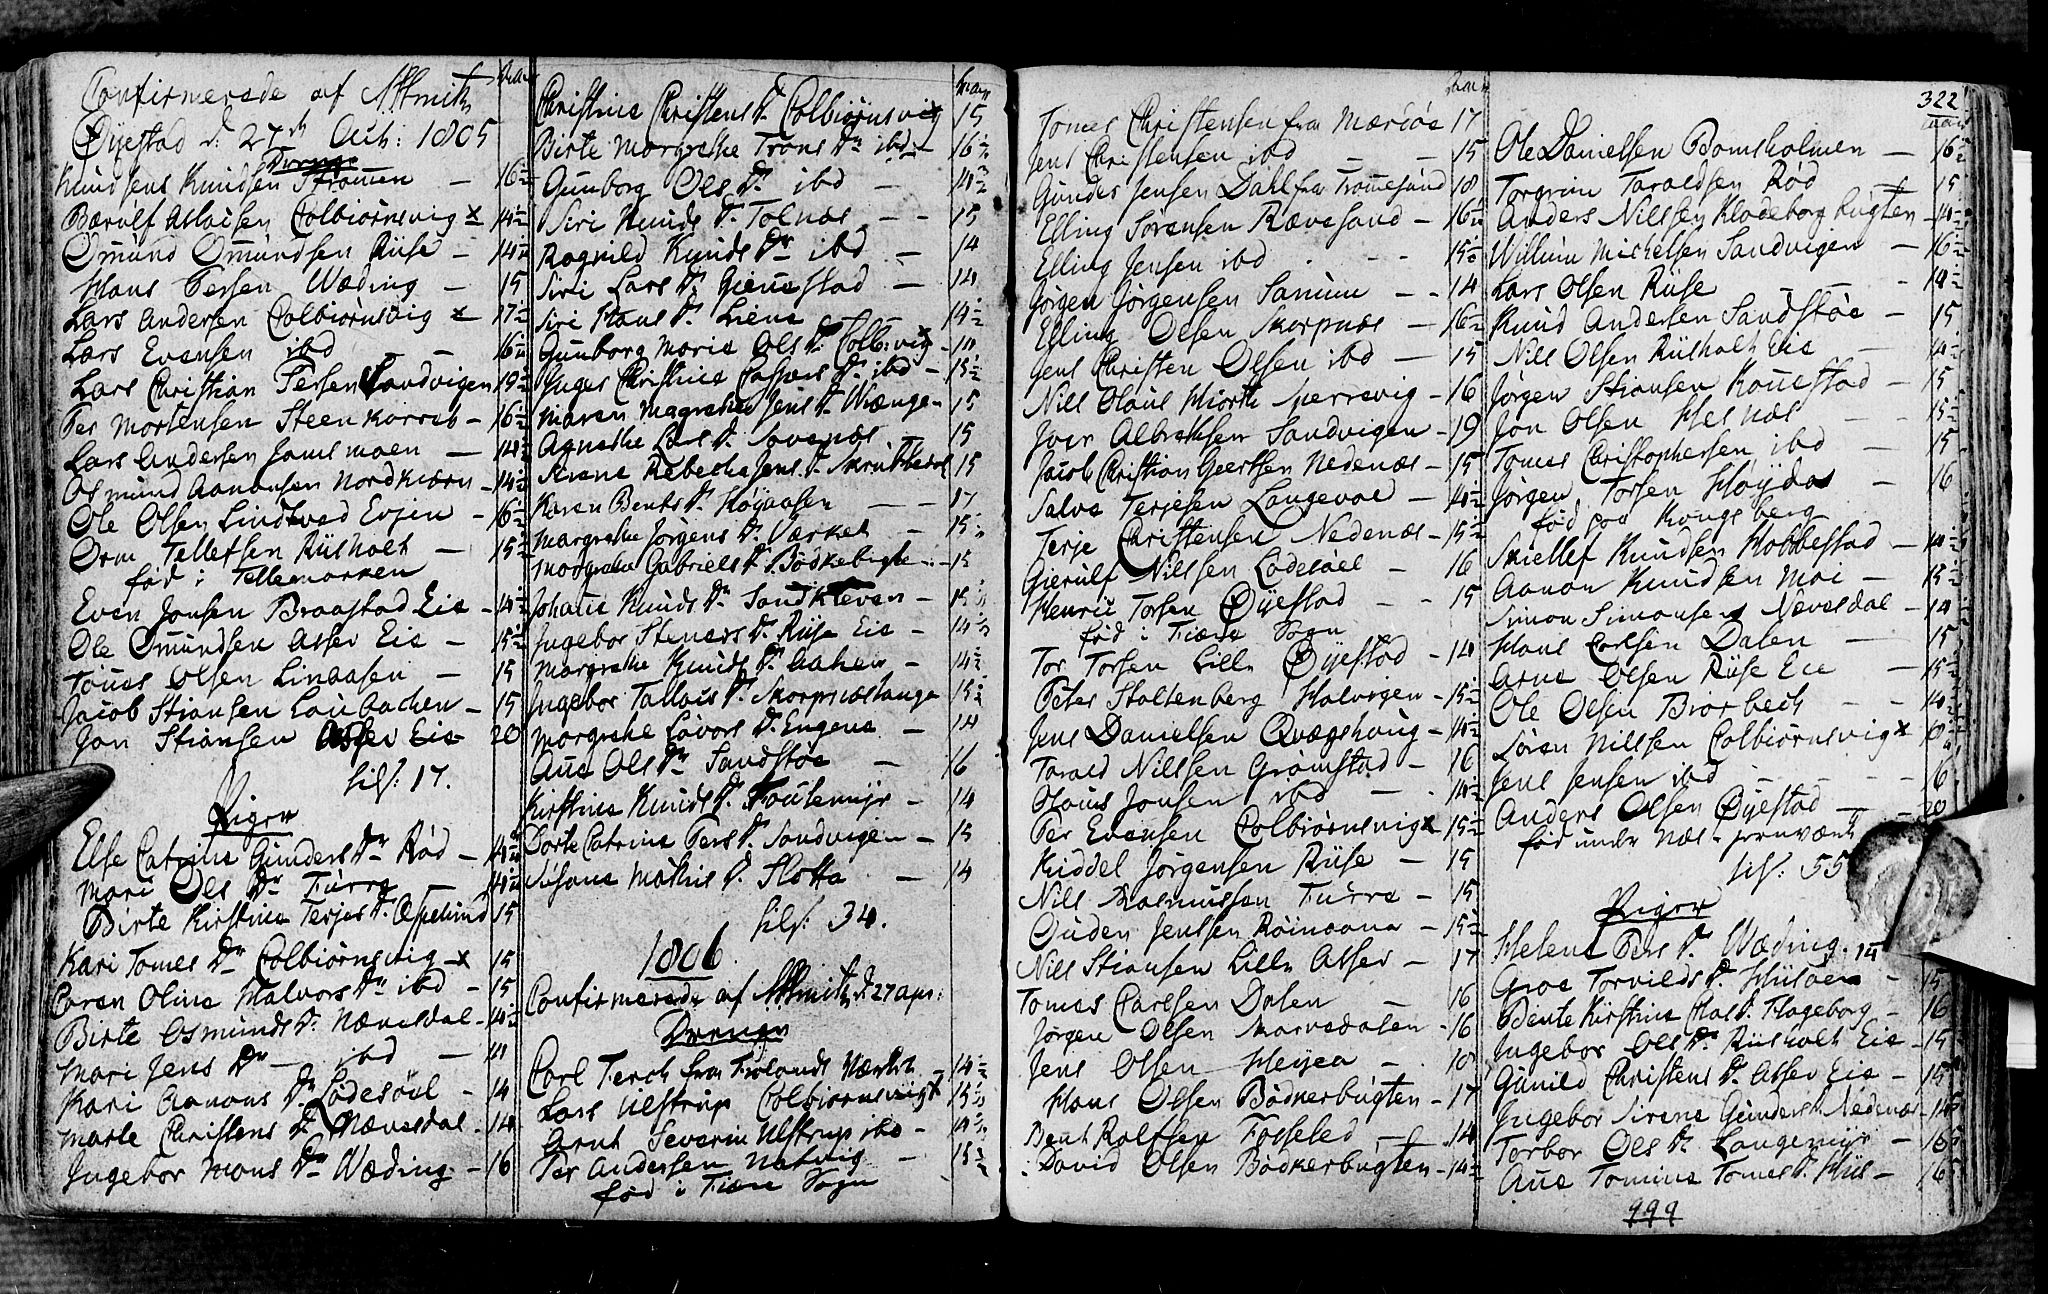 Confirmerede af NSmith
Øyestad d. 27de Octb: 1805
Drenge
Knud Jens Knudsen Strømen — 16 1/2
Berulf Aslaksen Colbiørnsvig x 14 1/2
Omund Omundsen Riise — 14 1/2
Hans Persen Wæding — 15
Lars Andersen Colbiørnsvig x 17 1/2
Lars Evensen ibd — 16 1/2
Lars Christian Persen Sandvigen 19 1/2
Per Mortensen Steenkorreb — 16 1/2
Lars Andersen Jomsmoen — 14 1/2
Osmund Aanonsen Nordkiærn — 14 1/2
Ole Olsen Lindtved Evjen — 16 1/2
Orm Tellefsen Riisholt — 15 1/2
fød i Tellemarken
Even Jonsen Braastad Eie — 14 1/2
Ole Omundsen Asser Eie — 15 1/2
Tomes Olsen Linaasen — 15
Jacob Stiansen Løvbachen — 15
Jon Stiansen Asser Eie 20
lils: 17.
Piger
Else Catrine Gunders Dr. Rød — 14 1/2
Mari Ols Dr Furre — 14 1/2
Birte Kirstine Terjes Dr. Espelund 15
Kari Tomes Dr Colbiørnsvig — x 15
Caren Oline Halvors Dr ibd — 15
Birte Osmunds Dr. Nævesdal — 14 1/2
Mari Jens Dr — ibd — 14
Kari Aanons Dr Lødesøel — 14
Marte Christens Dr. Nævesdal — 14
Ingebor Mons Dr Wæding — 16
Christine Christens Dr. Colbiørnsvig x 15
Birte Margrethe Trons Dr ibd — 16 1/2
Gunborg Ols Dr. ibd — 14 1/2
Siri Knuds Dr. Tolnæs — 15
Ragnild Knuds Dr ibd — 14
Siri Lars Dr. Giennestad — 14
Siri Hans Dr. Liene — 14 1/2
Gunborg Marie Ols Dr. Colb:vig x — 14
Inger Christine Caspers Dr. ibd — 15 1/2
Maren Magrethe Jens Dr. Wrænge — 15
Agnethe Lars Dr. Savenæs. 15
Sirene Rebecha Jens Dr. Skrubbedal 15
Karen Bents Dr. Høgaasen — 17
Margrethe Jørgens Dr. Værket — 15 1/2
Margrethe Gabriels Dr. Bødkebugte — 15
Johanne Knuds Dr. Sandkleven — 15
Ingebor Steners Dr. Riise Eie — 14 1/2
Margrethe Knuds Dr. Aaken — 14 1/2
Ingebor Tallacs Dr. Skorpnæstange 15 1/2
Margrethe Lavors Dr. Engene — 14
Ane Ols Dr Sandstøe — 16
Kirstine Knuds Dr. Foulemyr — 14
Dorte Catrine Pers Dr. Sandvigen — 15
Susane Mathis Dr. Flotta — 14
lils: 34.
1806.
Confirmerede af NSmith d. 27 apr:
Drenge
Carl Ferch fra Froelands Værket — 14 1/2
Lars Ulstrup Colbiørnsvig x 15 1/2
Arnt Severin Ulstrup ibd — 14
Per Andersen Natvig — 15 1/2
fød i Fiære Sogn
Tomes Christensen fra Mærdøe 17
Jens Christensen ibd — 15
Gunder Jensen Dahl fra Tromesund 18
Elling Sørensen Rævesand — 16 1/2
Elling Jensen ibd — 15
Jørgen Jørgensen Sanum — 14
Elling Olsen Skorpnæs — 16 1/2
Jens Christen Olsen ibd — 15
Nills Olaus Hiorth Sperrevig — 16
Iver Albretsen Sandvigen — 19
Jacob Christian Geertsen Nedenæs — 15
Salve Terjesen Langevoe — 14 1/2
Terje Christensen Nedenæs — 15 1/2
Gierulf Nilssen Lødesøel — 16
Henric Torsen Øyestad — 15
fød i Fiære Sogn
Tor Torsen Lille Øyestad — 14
Peter Stoltenberg Halvigen — 15 1/2
Jens Danielsen Qvægshoug — 14 1/2
Tarald Nilssen Gromstad — 16
Olaus Jonsen ibd — 14 1/2
Per Evensen Colbiørnsvig x 15 1/2
Kiddel Jørgensen Riise — 15
Nills Rasmussen Furre — 15
Ouden Jenssen Røinaana — 15 1/2
Nills Stiansen Lille Asser — 17
Tomes Carlsen Dalen — 16
Jørgen Olsen Marvedalen — 16
Jens Olsen Heyea — 18
Hans Olsen Bødkerbugten — 17
Bent Rolfsen Fosseled — 14
David Olsen Bødkerbugten — 14 1/2
322
Ole Danielsen Bomsholmen — 16 1/2
Torgrim Taraldsen Rød — 15
Anders Nilssen Klodeborg bugten — 14 1/2
Willum Michelsen Sandvigen — 16 1/2
Lars Olsen Riise — 14 1/2
Knud Andersen Sandstøe — 15
Nills Olsen Riisholt Eie — 14 1/2
Jørgen Stiansen Konnestad — 15
Jon Olsen Hesnæs — 15 1/2
Tomes Christophersen ibd — 15
Jørgen Torsen Høydal — 16
fød paa Kongsberg
Skiellef Knudsen Hobbestad — 14 1/2
Aanon Knudsen Moi — 15 1/2
Simon Simonsen Nævesdal — 14
Hans Carlsen Dalen — 15
Arne Olsen Riise Eie — 15 1/2
Ole Olsen Biorbech — 14 1/2
Søren Nilssen Colbiørnsvig x 18
Jens Jensen ibd — 16
Anders Olsen Øyestad — 20
fød under Næs-jernværk
lils: 55
Piger
Helene Pers Dr. Wæding. 14
Groe Torvilds Dr. Huusøen 15
Bente Kirstine Ols Dr. Flageborg — 16
Ingebor Ols Dr. Riisholt Eie — 15
Gunild Christens Dr. Asser Eie — 15
Ingebor Sirene Gunders Dr. Nedenæs — 14
Torbor Ols Dr. Langemyr — 16
Ane Tomine Tomes Dr. Huus — 16
999